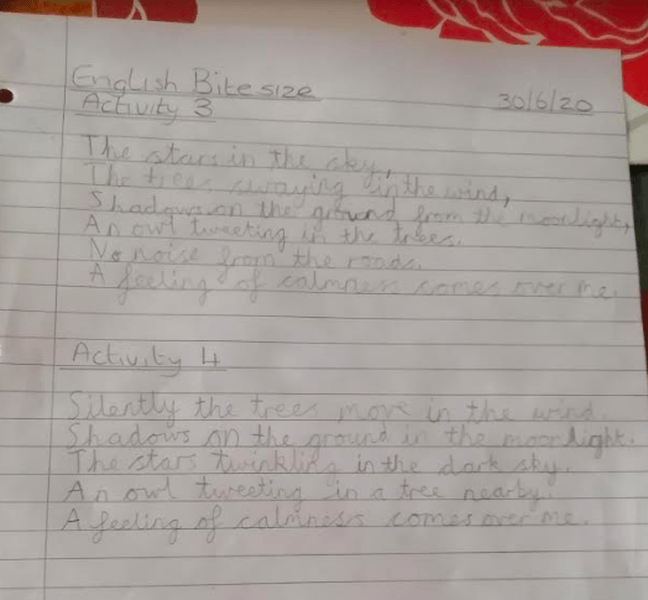 English Bitesize
30/6/20
Activity 3
The stars in the sky,
The trees swaying in the wind,
Shadows on the ground from the moonlight,
An owl tweeting in the trees.
No noise from the roads.
A feeling of calmness comes over me.
Activity 4
Silently the trees move in the wind.
Shadows on the ground in the moonlight.
The stars twinkling in the dark sky.
An owl tweeting in a tree nearby.
A feeling of calmness comes over me.